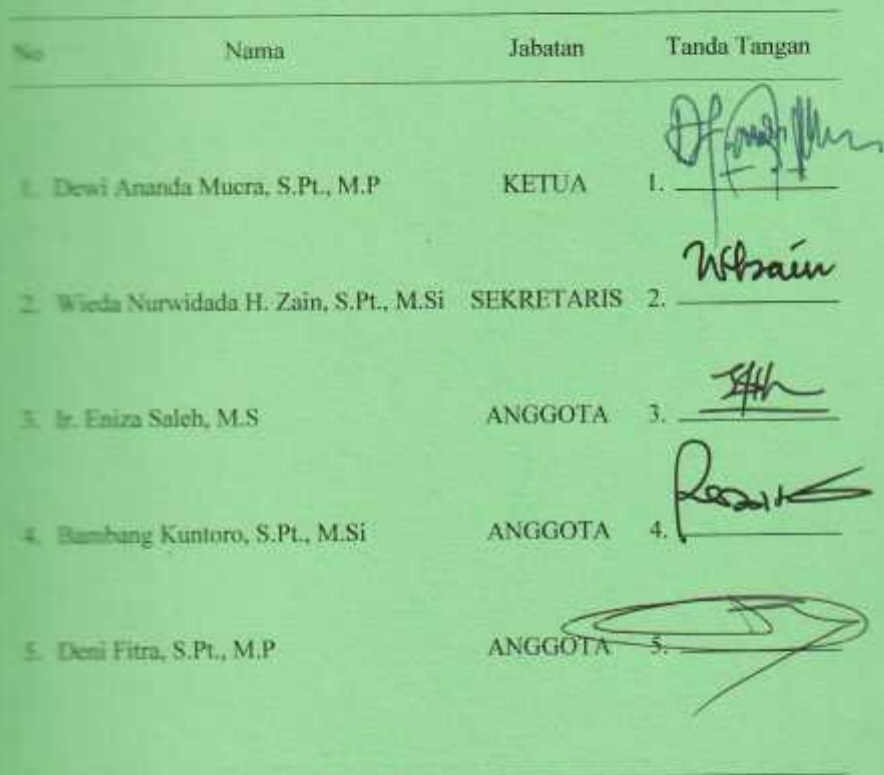 No Nama Jabatan Tanda Tangan
1. Dewi Ananda Mucra, S.Pt., M.P KETUA 1.
2. Wieda Nurwidada H. Zain, S.Pt., M.Si SEKRETARIS 2.
3. Ir. Eniza Saleh, M.S ANGGOTA 3.
4. Bambang Kuntoro, S.Pt., M.Si ANGGOTA 4.
5. Deni Fitra, S.Pt., M.P ANGGOTA 5.